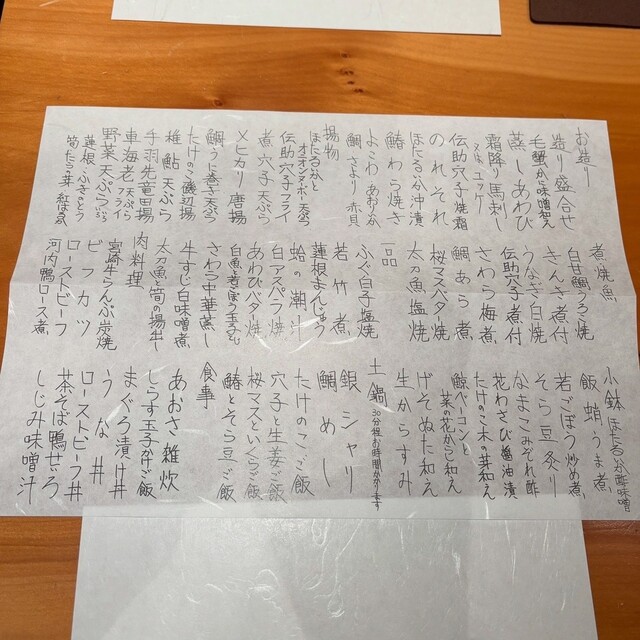 お造り
造り盛合せ
毛蟹かに味噌和え
蒸しあわび
霜降り馬刺し
又はユッケ
伝助穴子焼霜
のれそれ
ほたるいか沖漬
鰆わら焼き
よこわ あおりいか
鯛 さより 赤貝
揚物
ほたるいかと
オニオンヌーボー天ぷら
伝助穴子フライ
煮穴子天ぷら
メヒカリ唐揚
鯛うに巻き天ぷら
たけのこ磯辺揚
稚鮎天ぷら
手羽先竜田揚
車海老 天ぷら
フライ
野菜天ぷら
蓮根 ふきのとう
筍 たらの芽 紅はるか
煮焼魚
白甘鯛うろこ焼
きんき煮付
うなぎ白焼
伝助穴子煮付
さわら梅煮
鯛あら煮
桜マスバター焼
太刀魚塩焼
一品
ふぐ白子塩焼
若竹煮
蓮根まんじゅう
蛤の潮汁
白アスパラ焼
あわびバター焼
さわら中華蒸し
牛すじ白味噌煮
太刀魚と筍の揚出し
肉料理
宮崎牛らんぷ炭焼
ビフカツ
ローストビーフ
河内鴨ロース煮
小鉢
ほたるいか酢味噌
飯蛸うま煮
若ごぼう炒め煮
そら豆炙り
なまこみぞれ酢
花わさび醤油漬
たけのこ木の芽和え
鯨ベーコンと
菜の花からし和え
げそぬた和え
生からすみ
土鍋
30分程お時間かかります
銀シャリ
鯛めし
たけのこご飯
穴子と生姜ご飯
桜マスといくらご飯
鰆とそら豆ご飯
食事
あおさ雑炊
しらす玉子かけご飯
まぐろ漬け丼
うな丼
ローストビーフ丼
茶そば鴨せいろ
しじみ味噌汁